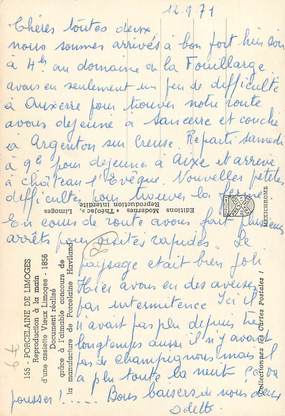 12.9.71
Chères toutes deux
nous sommes arrivés à bon port hier soir
à 4h au domaine de la Fouillarge
avons eu seulement un peu de difficulté
à Auxerre pour trouver notre route
avons déjeuné à Sancerre et couché
à Argenton sur Creuse. Reparti samedi
à 9h pour déjeuner à Aixe et arrivé
à château l'Evêque. Nouvelles petites
difficultés pour trouver la ferme
En cours de route avons fait plusieurs
arrêts pour visites rapides. Le
paysage était bien joli
Hier avons eu des averses
par intermittence Ici il
n'avait pas plu depuis très
longtemps aussi il n'y avait
pas de champignons mais il
a plu toute la nuit ça
pousse ! .... Bons baisers de nous deux
Odette
155 - PORCELAINE DE LIMOGES
Reproduction à la main
d'une assiette Vieux Limoges - 1856
Document réalisé
grâce à l'aimable concours de
la manufacture de Porcelaine Haviland
Editions Modernes « Théojac », Limoges
Reproduction interdite
Collectionnez les Cartes Postales !